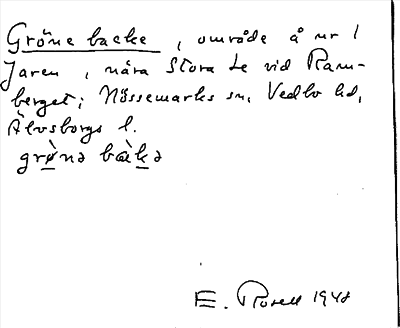 Gröne backe, område å nr 1
Jaren, nära Stora Le vid Ram-
berget; Nössemarks sn, Vedbo hd,
Älvsborgs l.
grø̀nə bæ̀kə
E. Rosell 1948